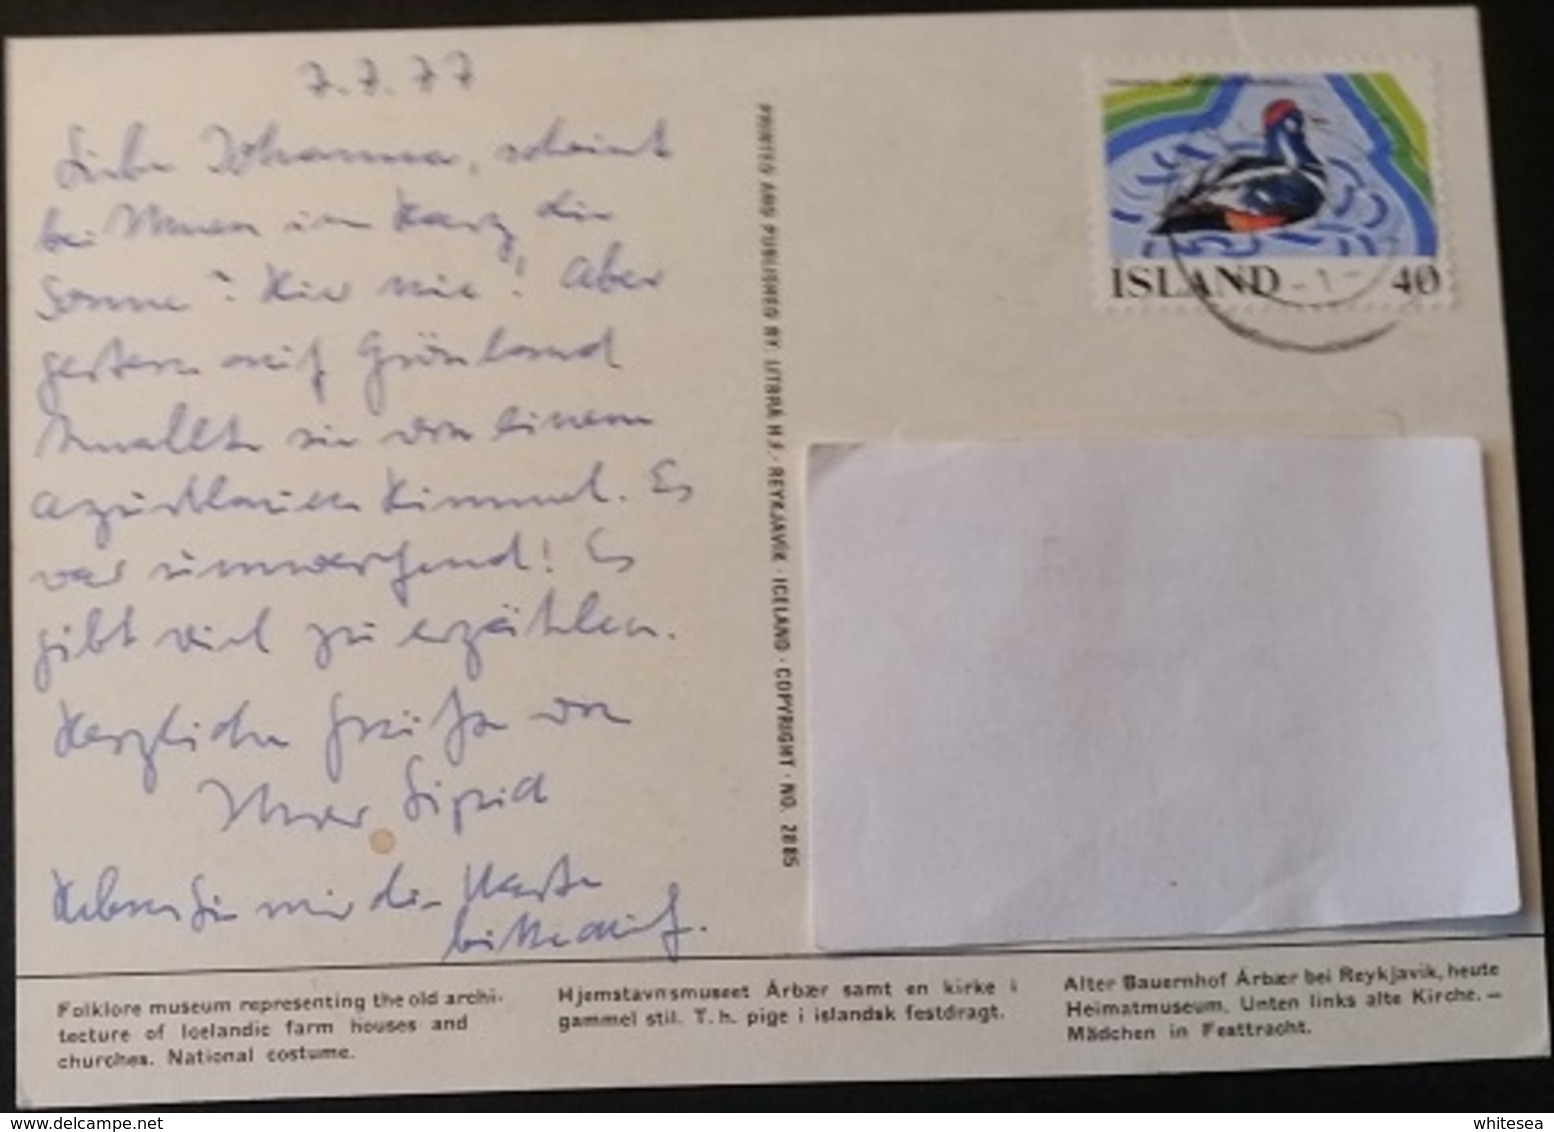 7.7.77
Liebe Johanna, scheint
bei Ihnen im Harz die
Sonne? Hier nie! Aber
gestern auf Grönland
knallte sie von einem
azurblauen Himmel. Es
war umwerfend! Es
gibt viel zu erzählen.
Herzliche Grüße von
Ihrer Sigrid
Heben Sie mir die Karte
bitte auf.
PRINTED AND PUBLISHED BY: LITBRÁ H.F. · REYKJAVÍK · ICELAND · COPYRIGHT · NO. 2885
ÍSLAND 40
Folklore museum representing the old archi-
tecture of Icelandic farm houses and
churches. National costume.
Hjemstavnsmuseet Árbær samt en kirke i
gammel stil. T. h. pige i islandsk festdragt.
Alter Bauernhof Árbær bei Reykjavik, heute
Heimatmuseum. Unten links alte Kirche. —
Mädchen in Festtracht.
whitesea